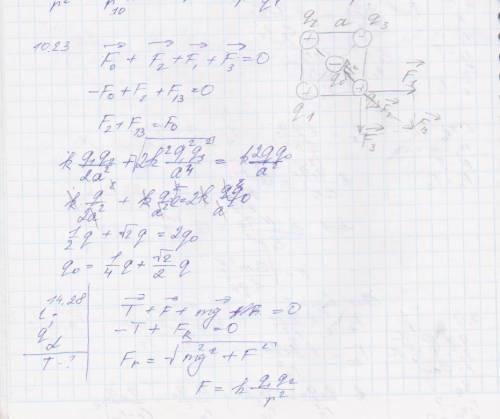 10.23
F₀ + F₂ + F₁ + F₃ = 0
-F₀ + F₂ + F₁₃ = 0
F₂ + F₁₃ = F₀
k q₁q₂/2a² + √2k² q²q²/a⁴ = k 2qq₀/a²
k q²/2a² + k q²√2/a² = 2k qq₀/a²
½q + √2q = 2q₀
q₀ = ¼q + √2/2 q
q₂ a q₃
q₀
q₁
F₁
F₃
14.28
q
α
T - ?
T + F + mg = 0
-T + F_R = 0
F_R = √mg² + F²
F = k q₁q₂/r²